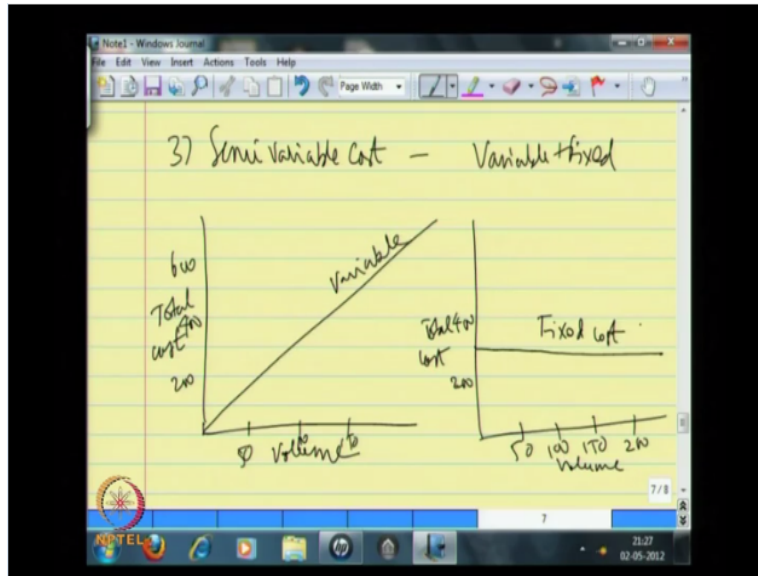 Note1 - Windows Journal
File Edit View Insert Actions Tools Help
Page Width
3) Semi variable cost - Variable + Fixed
600
Total
400
cost
200
Variable
50
Volume
Total 400
cost
200
Fixed cost
50 100 150 200
Volume
7/8
7
NPTEL
21:27
02-05-2012